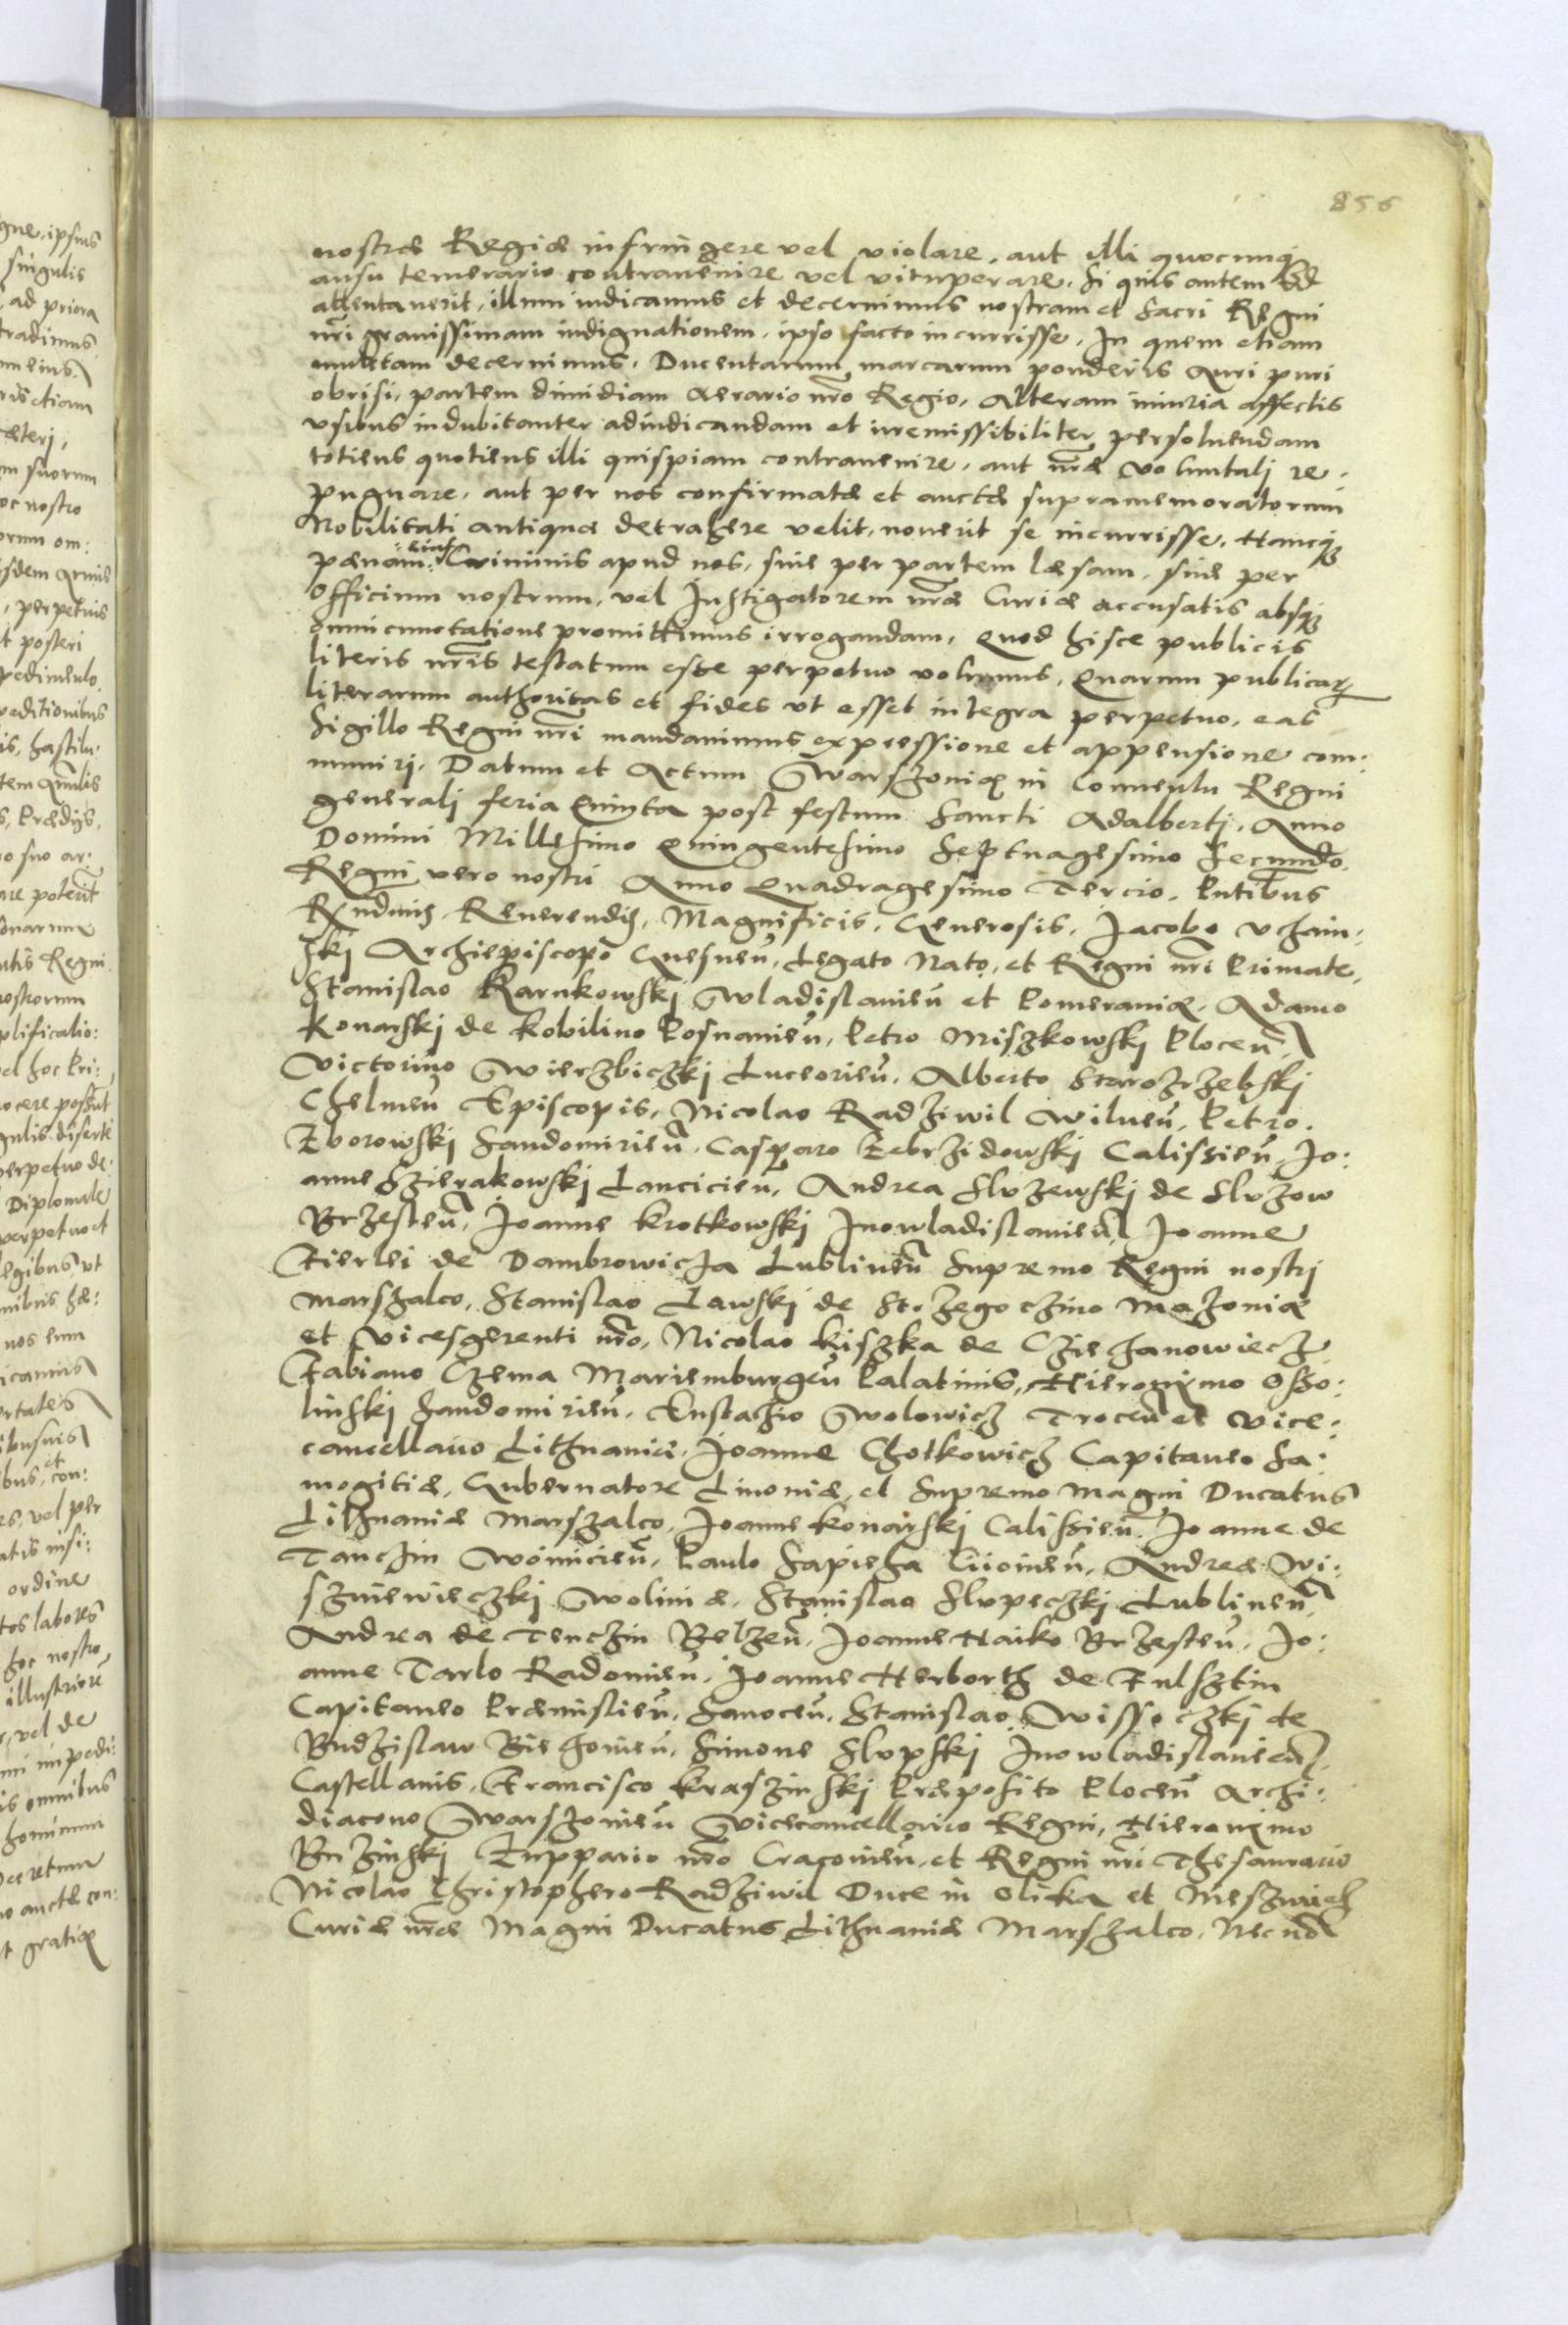 856
nostræ Regiæ infringere vel violare, aut illi quocunq꜄
ausu temerario contravenire vel vituperare. Si quis autem id
attentaverit, illum iudicamus et decernimus nostram et Sacri Regni
nr̃i gravissimam indignationem, ipso facto incurrisse. In quem etiam
mulctam decernimus, Ducentarum marcarum ponderis Auri puri
obrisi, partem dimidiam Aerario nr̃o Regio, Alteram iniuria affectis
vsibus indubitanter adiudicandam et irremissibiliter persolvendam
totiens quotiens illi quispiam contravenire, aut nr̃æ voluntatj re:
pugnare, aut per nos confirmatæ et auctæ supramemoratorum
Nobilitati antiquæ detrahere velit, noverit se incurrisse. Hancq꜄
pænam eius Criminis apud nos, sive per partem læsam, sive per
Officium nostrum, vel Instigatorem nr̃æ Curiæ accusatis absq꜄
omni cunctatione promittimus irrogandam. Quod hisce publicis
literis nr̃is testatum esse perpetuo volumus, Quarum publicaꝝ
literarum authoritas et fides vt esset integra perpetuo, eas
Sigillo Regni nr̃i mandavimus expressione et appensione com:
muniri. Datum et Actum Warszoviæ in Conventu Regni
generalj feria Quinta post festum Sancti Adalbertj. Anno
Domini Millesimo Quingentesimo Septuagesimo Secundo.
Regni vero nostri Anno Quadragesimo Tercio. Pñtibus
Rᷤndmis, Reverendis, Magnificis, Generosis, Iacobo Vchain:
skj Archiepiscopo Gnesneñ, Legato Nato, et Regni nr̃i Primate,
Stanislao Karnkowskj Wladislavieñ et Pomeraniæ, Adamo
Konarskj de Kobilino Posnanieñ, Petro Miszkowskj Ploceñ,
Victorino Wierzbiczkj Luceorieñ, Alberto Starozrzebskj
Chelmeñ Episcopis, Nicolao Radziwil Wilneñ, Petro
Zborowskj Sandomirieñ, Casparo Zebrzidowskj Calissieñ, Io:
anne Szierakowskj Lancicieñ, Andrea Sluzewskj de Sluzow
Brzesteñ, Joanne Krotkowskj Inowladislavieñ, Joanne
Fierlei de Dambrowicza Lublineñ Supremo Regni nostrj
Marszalco, Stanislao Lawskj de Strzegoczino Mazoviæ
et Vicesgerenti nr̃o, Nicolao Kiszka de Cziechanowiecz
Fabiano Czema Mariemburgeñ Palatinis, Hieronimo Osso:
linskj Sandomirieñ, Eustachio Wolowicz Troceñ et Vice:
cancellario Lithuaniæ, Joanne Chotkowicz Capitaneo Sa:
mogitiæ, Gubernatore Livoniæ, et Supremo Magni Ducatus
Lithuaniæ Marszalco, Joanne Konarskj Calissieñ, Joanne de
Tanczin Woinicieñ, Paulo Sapieha Kiiovieñ, Andrea Wi:
szniewieczkj Woliniæ, Stanislao Slupeczkj Lublineñ,
Andrea de Tenczin Belzeñ, Joanne Haiko Brzesteñ, Jo:
anne Tarlo Radomieñ, Joanne Herborth de Fulsztin
Capitaneo Præmislieñ, Sanoceñ, Stanislao Wissoczkj de
Budzislaw Biechovieñ, Simone Slupskj Inowladislavieñ
Castellanis, Francisco Kraszinskj Præposito Ploceñ Archi:
diacono Warszovieñ Vicecancellario Regni, Hieronimo
Buzinskj Zuppario nr̃o Cracovieñ, et Regni nr̃i Thesaurario
Nicolao Christophero Radziwil Duce in Olika et Nieszwiesz
Curiæ nr̃æ Magni Ducatus Lithuaniæ Marszalco, Necnõ